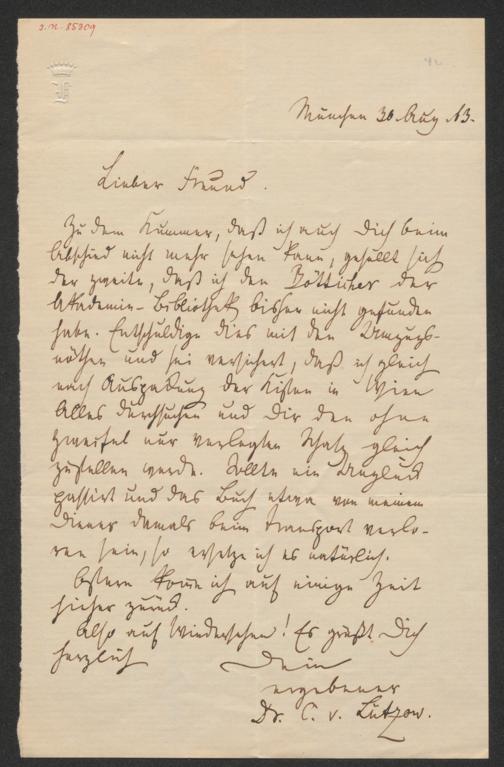 J.N. 85309
42
München 30 Aug 63.
Lieber Freund.
Zu dem Kummer, daß ich auch Dich beim
Abschied nicht mehr sehen kann, gesellt sich
der zweite, daß ich den Bötticher der
Akademie-Bibliothek bisher nicht gefunden
habe. Entschuldige dies mit den Umzugs-
nöthen und sei versichert, daß ich gleich
nach Auspackung der Kisten in Wien
Alles durchsuchen und Dir den ohne
Zweifel nur verlegten Schatz gleich
zustellen werde. Sollte ein Unglück
passirt und das Buch etwa von meinem
Diener damals beim Transport verlo-
ren sein, so ersetze ich es natürlich.
Ostern komme ich auf einige Zeit
hierher zurück.
Also auf Wiedersehen! Es grüßt Dich
herzlich Dein
ergebener
Dr. C. v. Lützow.